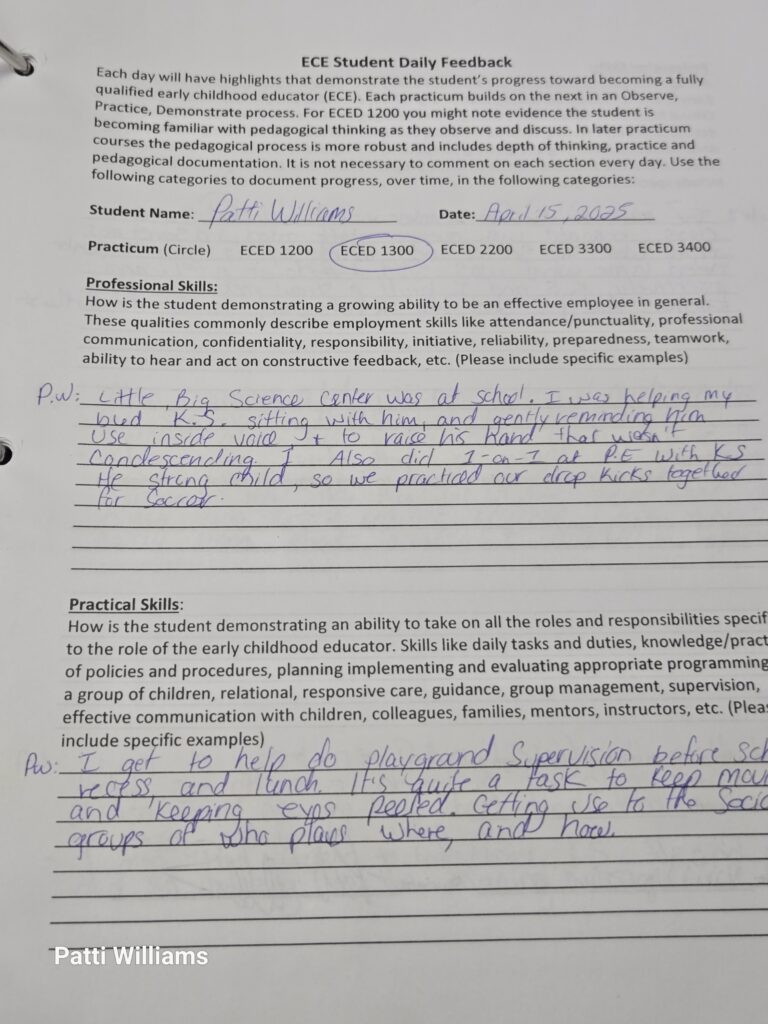 ECE Student Daily Feedback
Each day will have highlights that demonstrate the student's progress toward becoming a fully
qualified early childhood educator (ECE). Each practicum builds on the next in an Observe,
Practice, Demonstrate process. For ECED 1200 you might note evidence the student is
becoming familiar with pedagogical thinking as they observe and discuss. In later practicum
courses the pedagogical process is more robust and includes depth of thinking, practice and
pedagogical documentation. It is not necessary to comment on each section every day. Use the
following categories to document progress, over time, in the following categories:
Student Name: Patti Williams Date: April 15, 2025
Practicum (Circle) ECED 1200 ECED 1300 ECED 2200 ECED 3300 ECED 3400
Professional Skills:
How is the student demonstrating a growing ability to be an effective employee in general.
These qualities commonly describe employment skills like attendance/punctuality, professional
communication, confidentiality, responsibility, initiative, reliability, preparedness, teamwork,
ability to hear and act on constructive feedback, etc. (Please include specific examples)
P.W: Little Big Science Center was at school. I was helping my
bud K.S. sitting with him, and gently reminding him
Use inside voice, + to raise his hand that wasn't
Condescending. I Also did 1-on-1 at P.E with KS
He strong child, so we practiced our drop kicks together
for Soccer.
Practical Skills:
How is the student demonstrating an ability to take on all the roles and responsibilities specif
to the role of the early childhood educator. Skills like daily tasks and duties, knowledge/pract
of policies and procedures, planning implementing and evaluating appropriate programming
a group of children, relational, responsive care, guidance, group management, supervision,
effective communication with children, colleagues, families, mentors, instructors, etc. (Pleas
include specific examples)
PW: I get to help do playground Supervision before sch
recess, and lunch. It's quite a task to keep mov
and keeping eyes peeled. Getting use to the Socia
groups of who plays where, and how.
Patti Williams